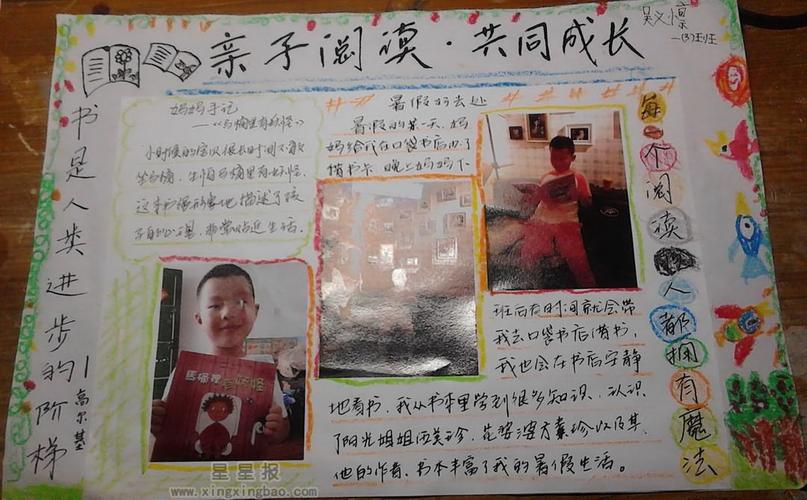 亲子阅读·共同成长
一(3)班
书是人类进步的阶梯
—高尔基
妈妈手记
——《马桶里有妖怪》
小时候的宝以很长时间不喜欢
坐马桶，生怕马桶里有妖怪，
这本书很形象地描述了孩
子的心理，非常贴近生活。
暑假好去处
暑假的某一天，妈
妈给我在口袋书店办了
借书卡，晚上妈妈下
班后有时间就会带
我去口袋书店借书，
我也会在书店安静
地看书，我从书本里学到很多知识，认识
了阳光姐姐伍美珍，花婆婆方素珍以及其
他的作者，书本丰富了我的暑假生活。
馬桶裡有妖怪
每一个阅读的人都拥有魔法
星星报
www.xingxingbao.com